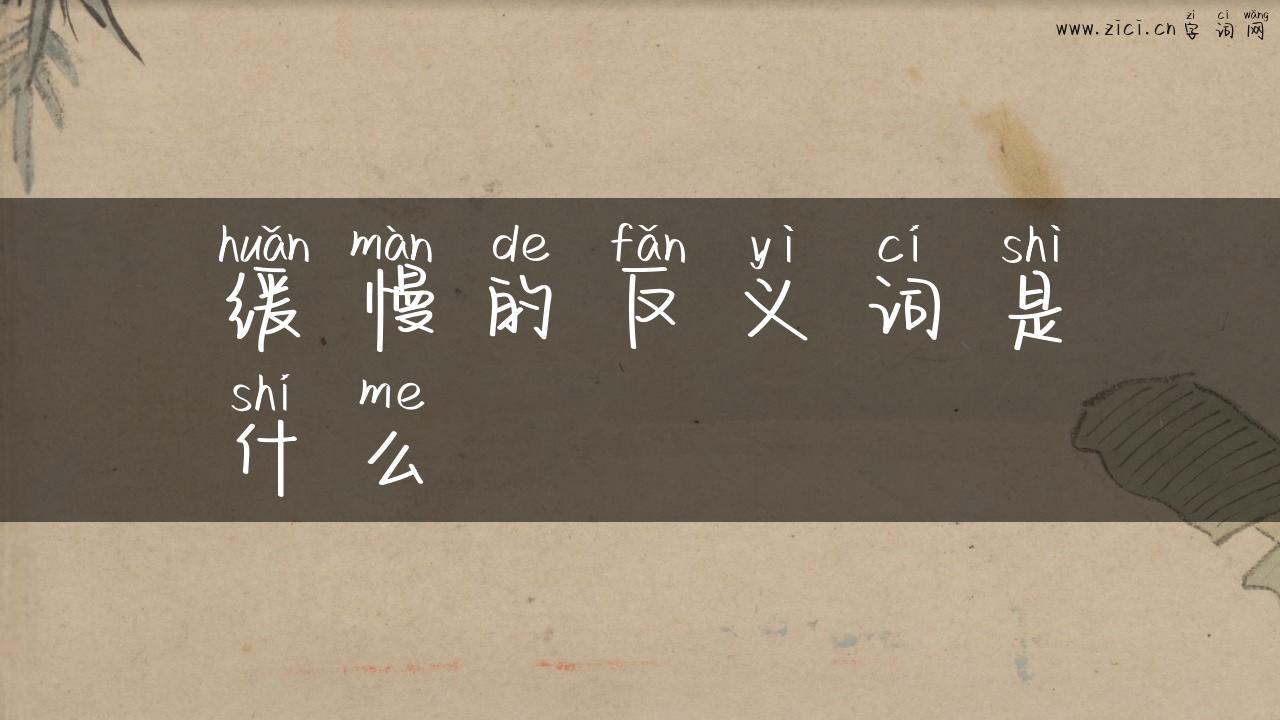 zì cí wǎng
www.zici.cn 字词网
huǎn màn de fǎn yì cí shì
缓慢的反义词是
shí me
什么